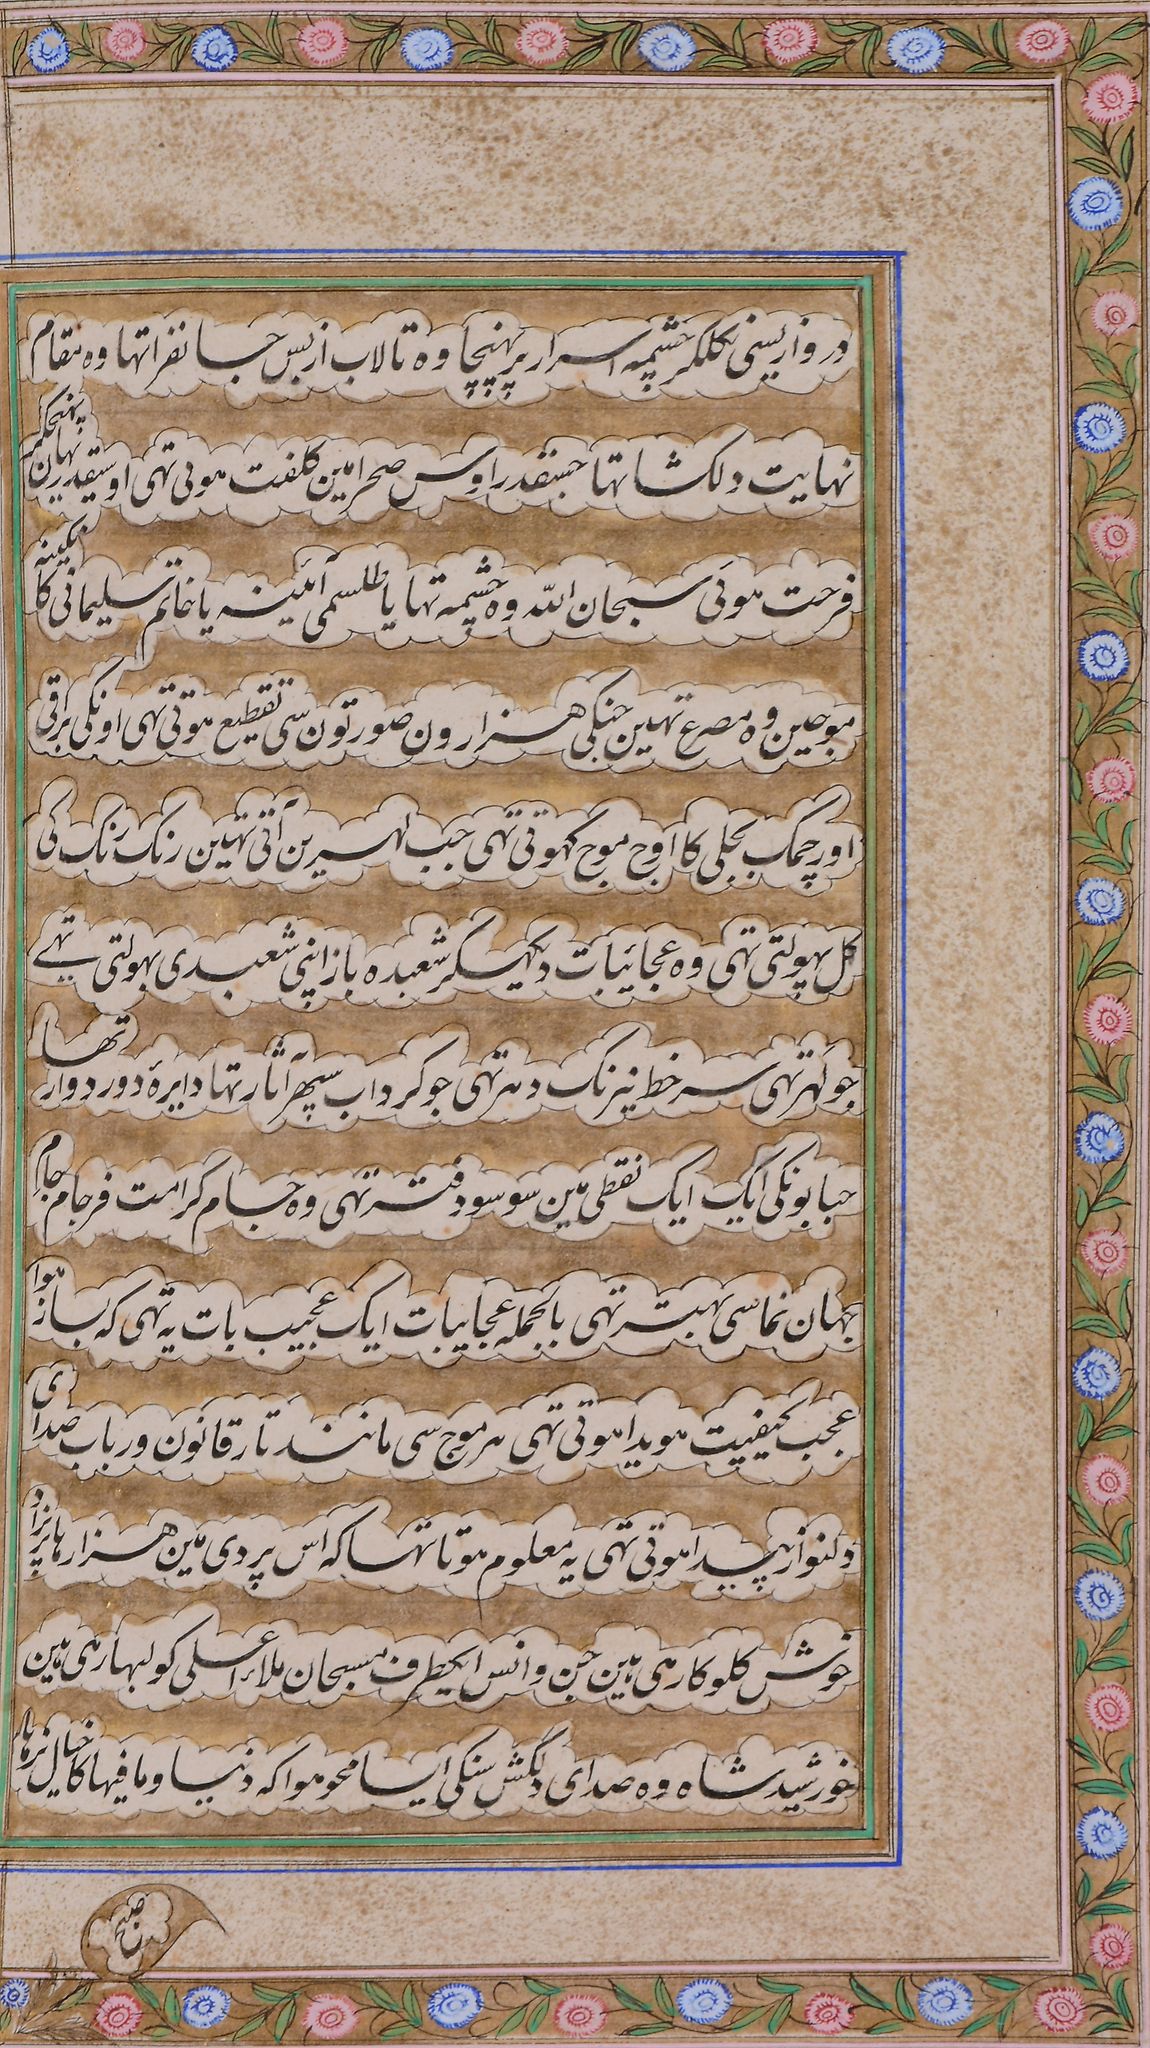 دروازیسی نکلکر چشمہ اسرار پر پہنچا وہ تالاب از بس جانفزا تہا وہ مقام
نہایت دلکشا تہا جسقدر اوس صحرا مین کلفت ہوئی تہی اوسیقدر یہان پہنچکر
فرحت ہوئی سبحان اللہ وہ چشمہ تہا یا طلسمی آئینہ یا خاتم سلیمانی کا نگینہ
موجین وہ مصرع تہین جنکی ہزارون صورتون سی تقطیع ہوتی تہی اونکی براقی
اور چمک بجلی کا اوج موج کہوتی تہی جب لہرین آتی تہین رنک رنک کی
کل پہولتی تہی وہ عجائیبات دیکہیکر شعبدہ باز اپنی شعبدی بہولتی تہے
جو لہر تہی سہ خط نیرنک دہر تہی جو کرداب سپہر آثار تہا دایرۂ دور دوار تھا
حبابونکی ایک ایک نقطی مین سو سو دفتر تہی وہ جام کرامت فرجام جام
جہان نما سی بہتر تہی بالجملہ عجایبات ایک عجیب بات یہ تہی کہ بساز ہوا
عجب کیفیت ہویدا ہوتی تہی ہر موج سی مانند تار قانون و رباب صدای
دلنواز پیدا ہوتی تہی یہ معلوم ہوتا تہا کہ اس پردی مین ہزارہا پریزاد
خوش کلو کا رہی ہین جن و انس ایکطرف مسبحان ملاء اعلی کو لبہا رہی ہین
خورشید شاہ وہ صدای دلکش سنکی ایسا محو ہوا کہ دنیا و مافیہا کا خیال نرہا
صبح